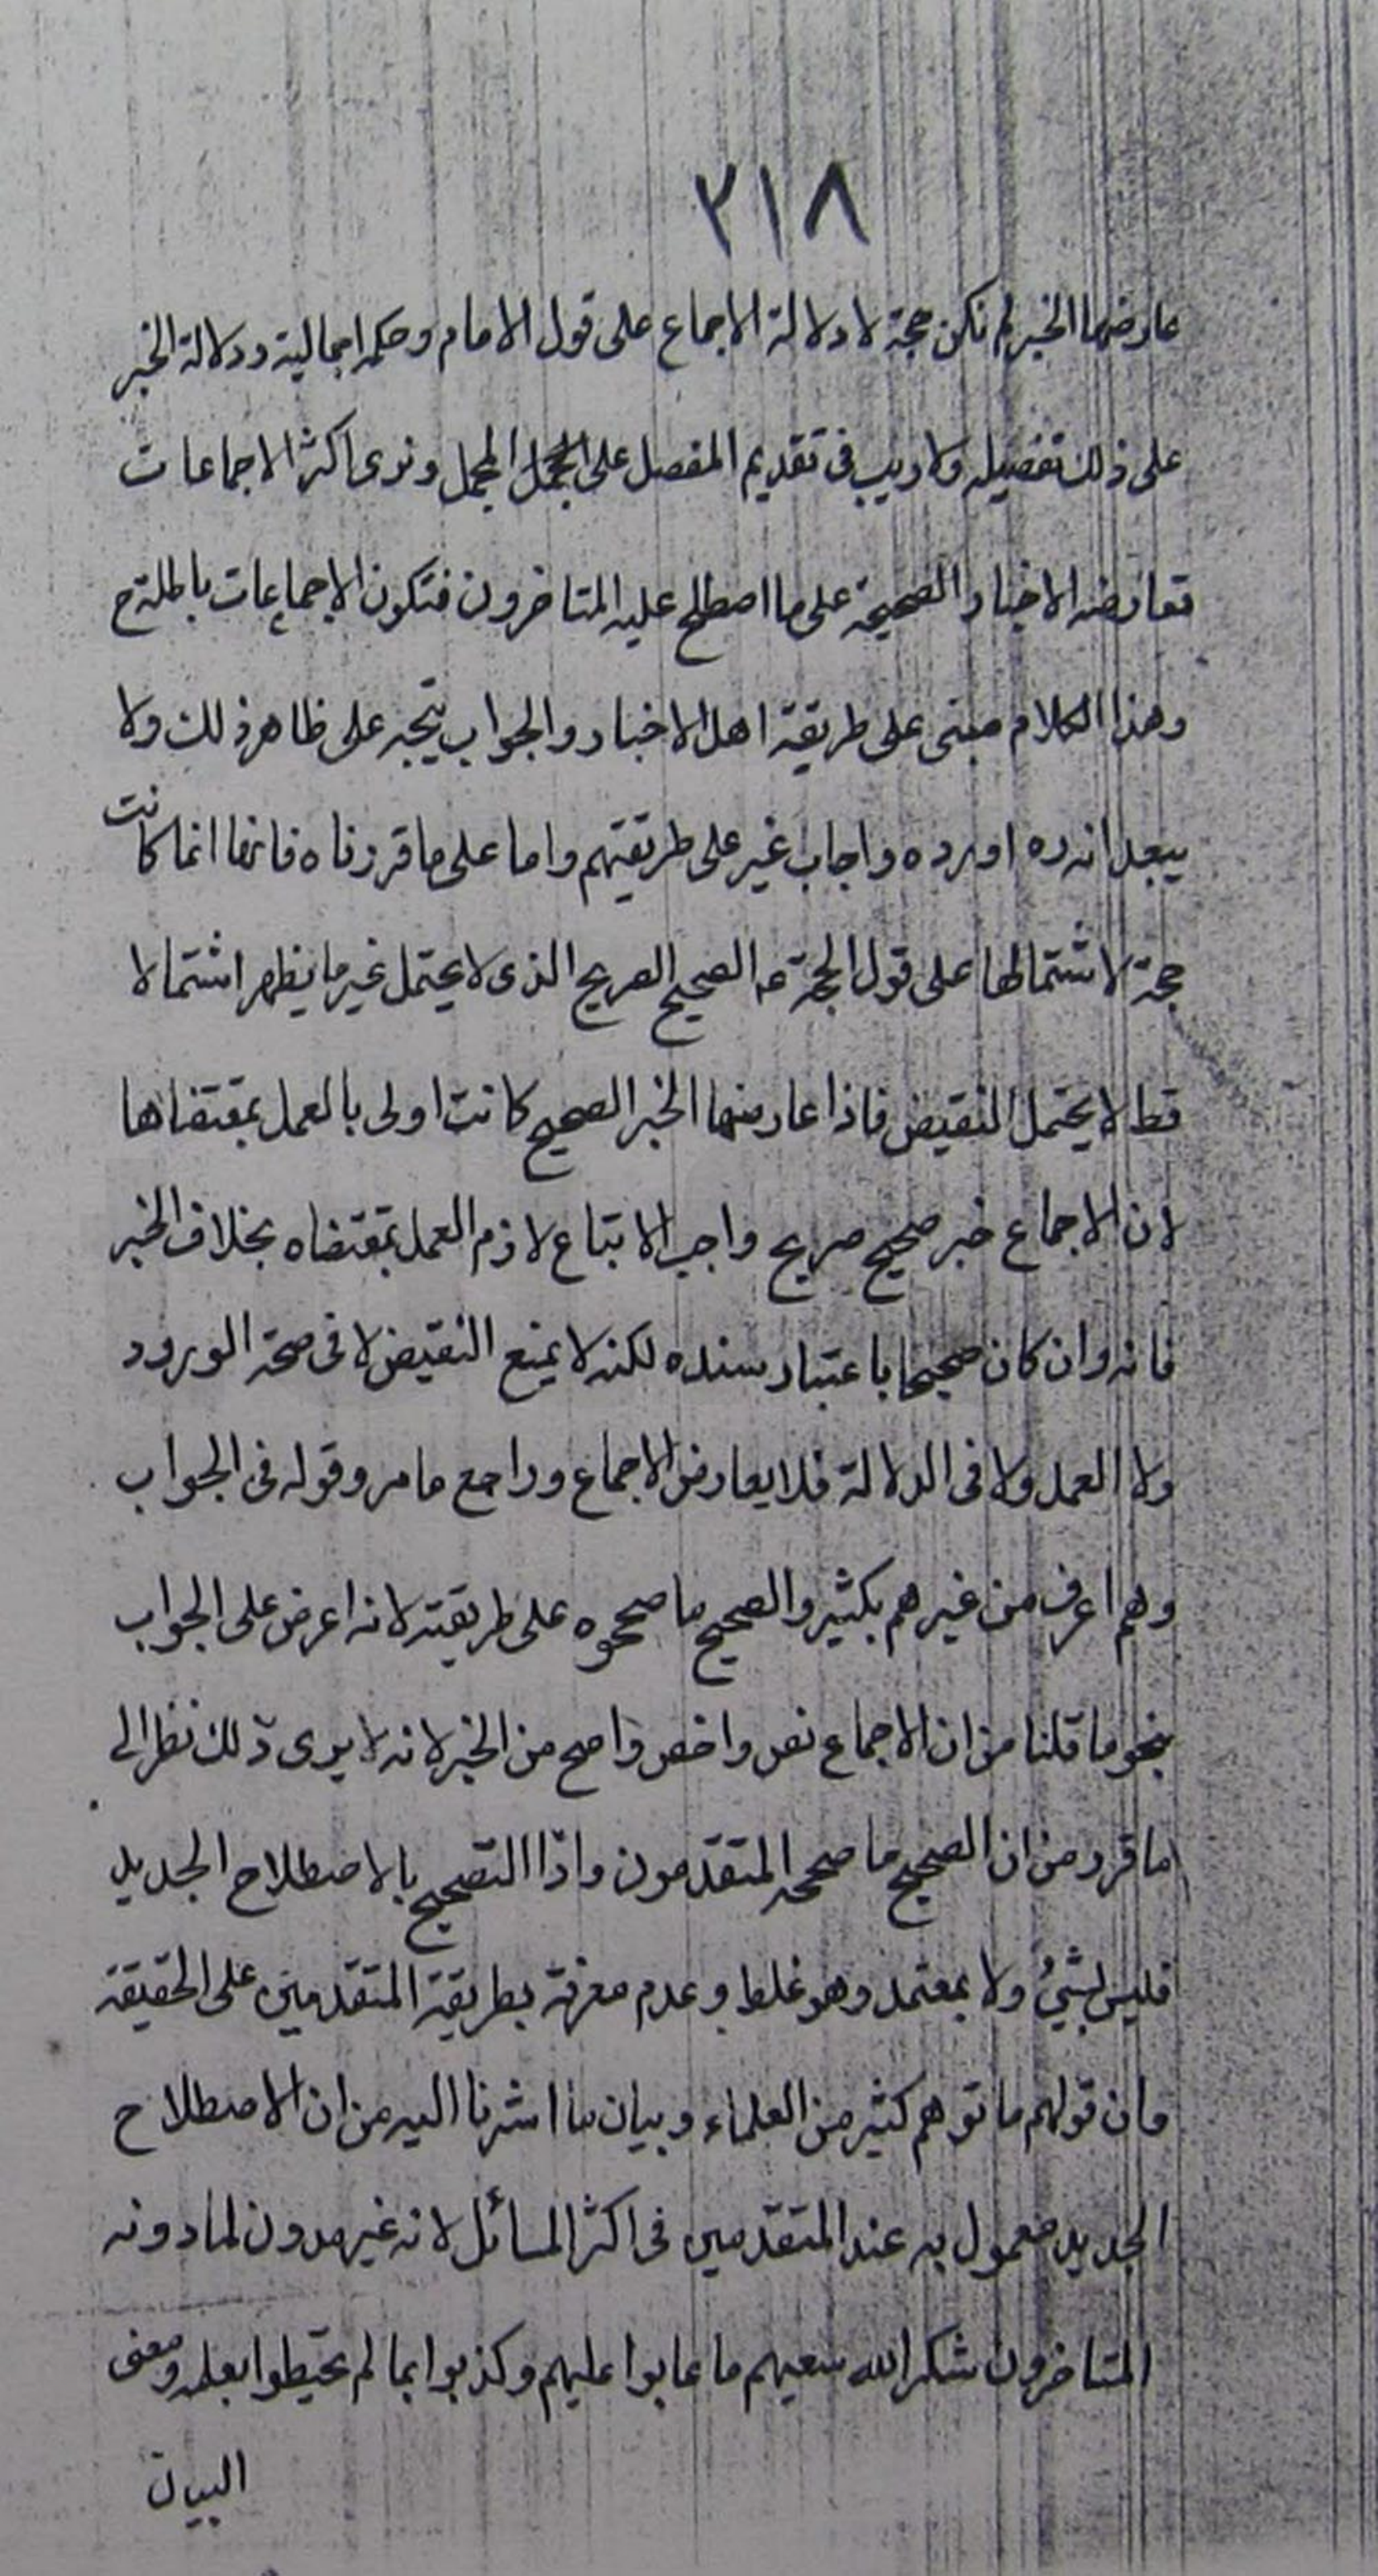 ٢١٨
عارضها الخبر لم تكن حجة لا دلالة الاجماع على قول الامام وحكمه اجمالية ودلالة الخبر
على ذلك تفصيله ولا ريب فى تقديم المفصل على المجمل المجمل ونرى اكثر الاجماعات
تعارضه الاخبار الصحيحة على ما اصطلح عليه المتاخرون فتكون الاجماعات باطلة ح
وهذا الكلام مبنى على طريقة اهل الاخبار والجواب يتجه على ظاهر ذلك ولا
يبعد انه ره اورده واجاب غير على طريقتهم واما على ما قررناه فانها انما كانت
حجة لاشتمالها على قول الحجة عه الصحيح الصريح الذى لا يحتمل غير ما يظهر اشتمالا
قط لا يحتمل النقيض فاذا عارضها الخبر الصحيح كانت اولى بالعمل بمقتضاها
لان الاجماع خبر صحيح صريح واجب الاتباع لازم العمل بمقتضاه بخلاف الخبر
فانه وان كان صحيحا باعتبار سنده لكنه لا يمنع النقيض لا فى صحة الورود
ولا العمل ولا فى الدلالة فلا يعارض الاجماع وراجع ما مر وقوله فى الجواب
وهم اعرف من غيرهم بكثير والصحيح ما صححوه على طريقته لانه اعرض على الجواب
بنحو ما قلنا من ان الاجماع نص واخص واصح من الخبر لانه لا يرى ذلك نظرا الى
ما قرر من ان الصحيح ما صححه المتقدمون واذا التصحيح بالاصطلاح الجديد
فليس بشئ ولا بمعتمد وهو غلط وعدم معرفة بطريقة المتقدمين على الحقيقة
وان قولهم ما توهم كثير من العلماء وبيان ما اشرنا اليه من ان الاصطلاح
الجديد معمول به عند المتقدمين فى اكثر المسائل لانه غير مدون لما دونه
المتاخرون شكر الله سعيهم ما عابوا عليهم وكذبوا بما لم يحيطوا بعلمه ومعنى
البيان